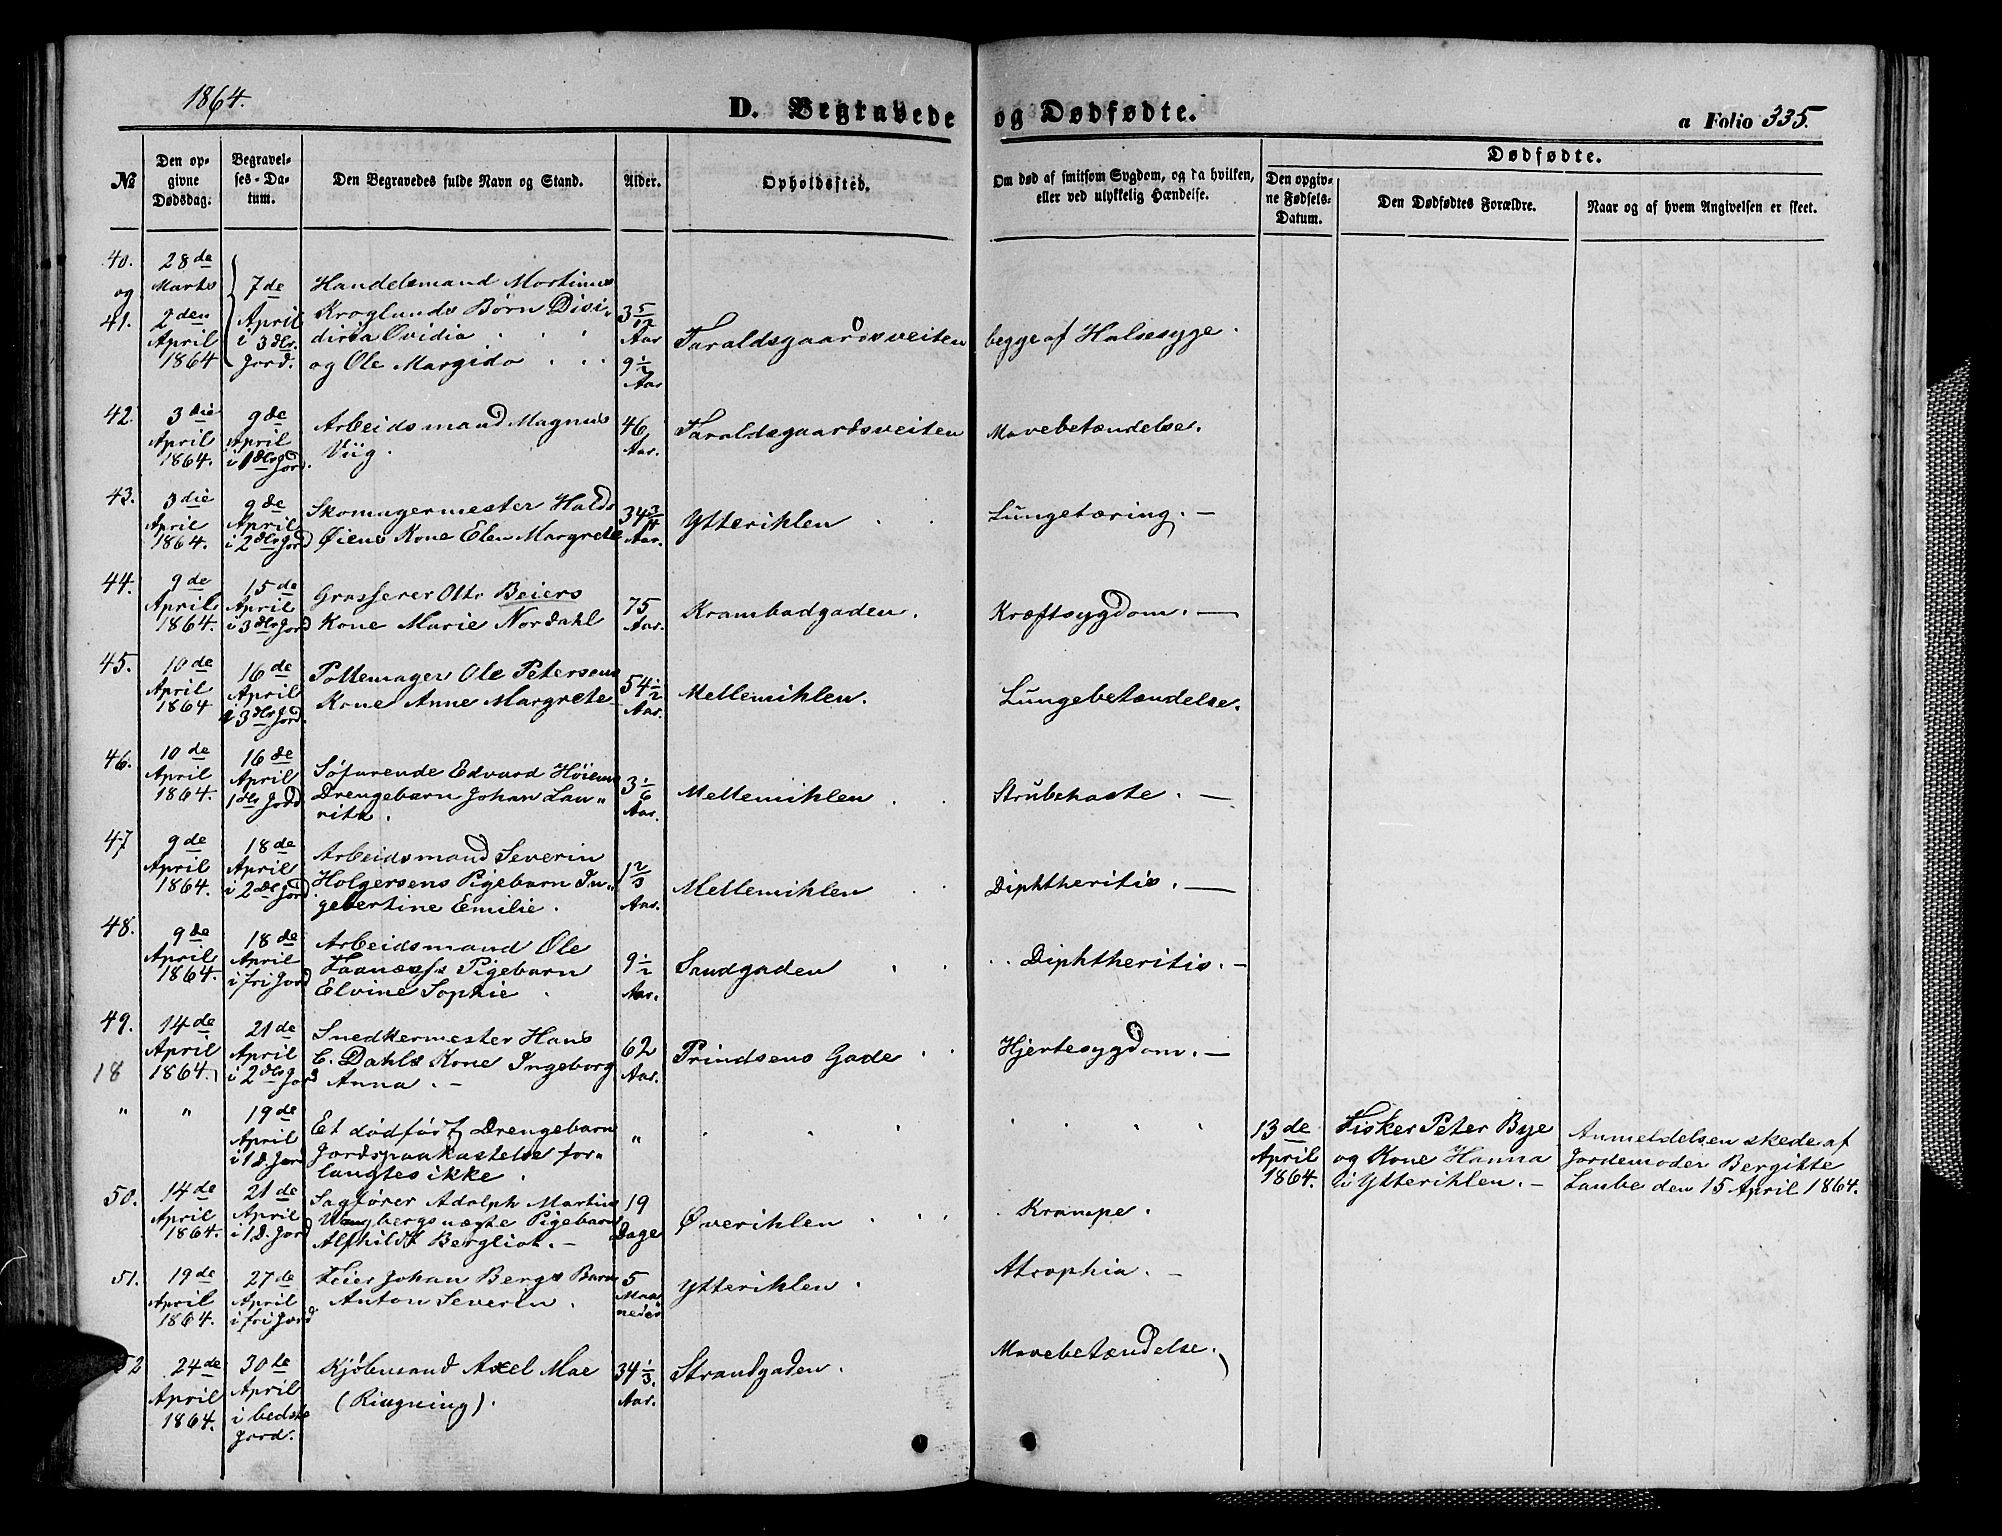 1864.
D. Begravede og Dødfødte.
a Folio 335.
№
Den opgivne Dødsdag.
Begravelses-Datum.
Den Begravedes fulde Navn og Stand.
Alder.
Opholdssted.
Om død af smitsom Sygdom, og da hvilken,
eller ved ulykkelig Hændelse.
Dødfødte.
Den opgivne Fødsels-Datum.
Den Dødfødtes Forældre.
Naar og af hvem Angivelsen er skeet.
40. og 41.
28de Marts
2den April 1864
7de April i 3 dlr. Jord.
Handelsmand Mortinus
Kroglunds Børn Disi-
diria Ovidia
og Ole Margido
3 5/12 Aar
9 1/2 Aar
Taraldsgaardsveiten
begge af Halsesyge.
42.
3die April 1864.
9de April i 1 dlr Jord.
Arbeidsmand Magnus
Viig.
46 Aar.
Taraldsgaardsveiten
Mavebetændelse.
43.
3die April 1864.
9de April i 2 dlr Jord
Skomagermester Halds
Øiens Kone Elen Margrete
34 Aar.
Ytterihlen
Lungetæring. —
44.
9de April 1864.
15de April i 3 dlr Jord
Grosserer Otto Beiers
Kone Marie Nordahl
75 Aar.
Krambodgaden.
Kræftsygdom. —
45.
10de April 1864
16de April i 3 dlr Jord.
Pottemager Ole Petersens
Kone Anne Margrete
54 1/2 Aar.
Mellemihlen.
Lungebetændelse.
46.
10de April 1864.
16de April 1 dlr Jord
Søfarende Edvard Høiens
Drengebarn Johan Lau-
ritz.
3 1/6 Aar.
Mellemihlen.
Strubehoste. —
47
9de April 1864.
18de April i 2 dlr Jord
Arbeidsmand Severin
Holgersens Pigebarn In-
gebertine Emilie.
1 2/3 Aar.
Mellemihlen
Diphtheritis. —
48.
9de April 1864.
18de April i fri Jord
Arbeidsmand Ole
Pigebarn
Elvine Sophie
9 1/2 Aar.
Sandgaden
Diphtheritis. —
49.
18
14de April 1864.
21de April i 2 dlr Jord
Snedkermester Hans
C. Dahls Kone Ingeborg
Anna. —
62 Aar.
Prindsens Gade
Hjertesygdom. —
" "
19de April i 1 d. Jord
Et dødfødt Drengebarn
Jordspaakastelse for-
langtes ikke.
"
13de April 1864.
Fisker Peter Bye
og Kone Hanna
i Ytterihlen. —
Anmeldelsen skede af
Jordemoder Bergitte
Laube den 15 April 1864.
50.
14de April 1864.
21de April i 1 d. Jord
Sagfører Adolph Martin
Wangbergs uægte Pigebarn
Alfhildt Bergliot. —
19 Dage
Øverihlen
Krampe.
51.
19de April 1864.
27de April i fri Jord
Feier Johan Bergs Barn
Anton Severin.
5 Maaneder
Ytterihlen.
Atrophia. —
52
24de April 1864.
30te April i bedste Jord.
Kjøbmand Axel Moe
(Ringning).
34 1/3 Aar.
Strandgaden.
Mavebetændelse.